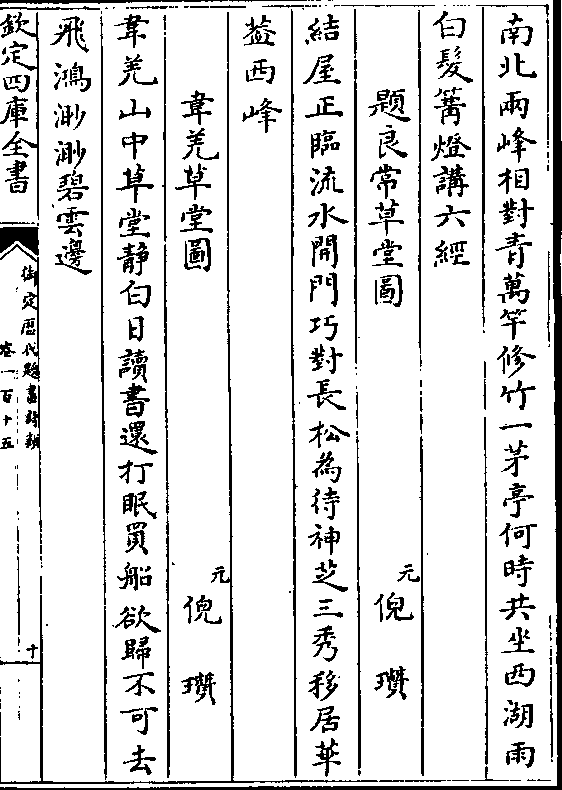 南北兩峰相對青萬竿修竹一茅亭何時共坐西湖雨
白髮篝燈講六經
題良常草堂圖 元 倪瓚
結屋正臨流水開門巧對長松為待神芝三秀移居華
蓋西峰
韋羌草堂圖 元 倪瓚
韋羌山中草堂静白日讀書還打眠買船欲歸不可去
飛鴻渺渺碧雲邊
欽定四庫全書
御定歷代題畫詩類
卷一百十五
十